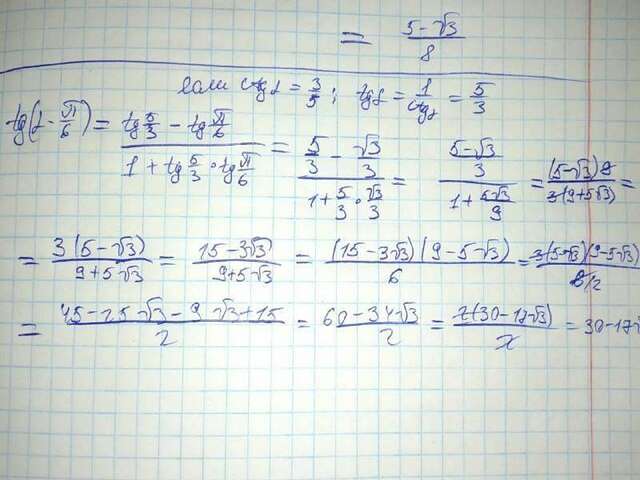 = (5-√3)/8
если ctgα = 3/5; tgα = 1/ctgα = 5/3
tg(α - π/6) = (tg 5/3 - tg π/6)/(1 + tg 5/3 · tg π/6) = (5/3 - √3/3)/(1 + 5/3 · √3/3) = ((5-√3)/3)/(1 + 5√3/9) = (5-√3)9/3(9+5√3) =
= 3(5-√3)/(9+5√3) = (15-3√3)/(9+5√3) = (15-3√3)(9-5√3)/6 = 3(5-√3)(9-5√3)/6/2
= (45-25√3-9√3+15)/2 = (60-34√3)/2 = 2(30-17√3)/2 = 30-17